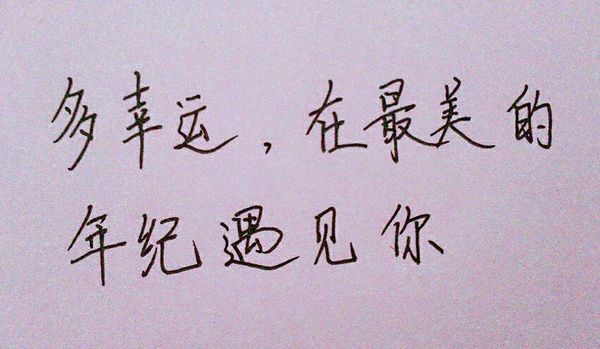 多幸运，在最美的
年纪遇见你